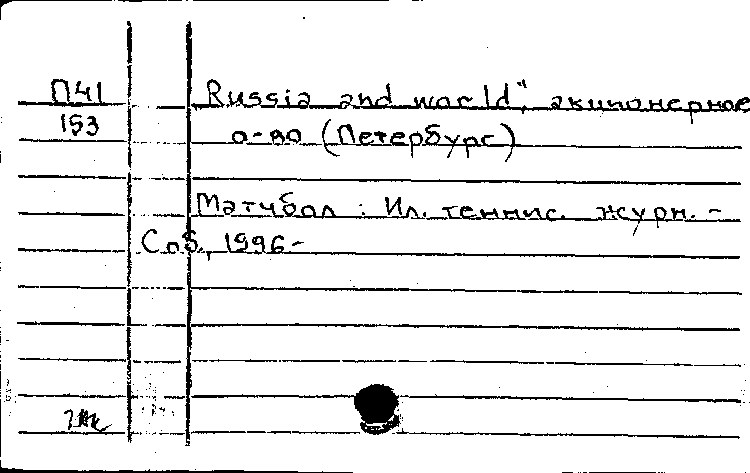 П41 Russia and world", акционерное
153 о-во (Петербург)
Матчбол : Ил. теннис. журн. -
Спб., 1996-